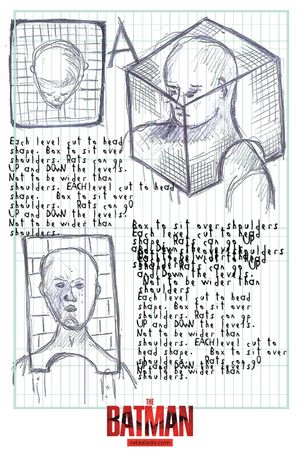 A
Each level cut to head
shape. Box to sit over
shoulders. Rats can go
UP and DOWN the levels.
Not to be wider than
shoulders. EACH level cut to head
shape. Box to sit over
shoulders. Rats can go
UP and DOWN the levels.
Not to be wider than
shoulders.
Box to sit over shoulders
Each level cut to head
shape. Rats can go UP
and Down the levels.
Not to be wider than
shoulders
Each level cut to head
shape. Box to sit over
shoulders. Rats can go
UP and DOWN the levels.
Not to be wider than
shoulders. EACH level cut to
head shape. Box to sit over
shoulders. Rats can go
UP and DOWN the levels.
Not to be wider than
shoulders.
THE
BATMAN
rataalada.com